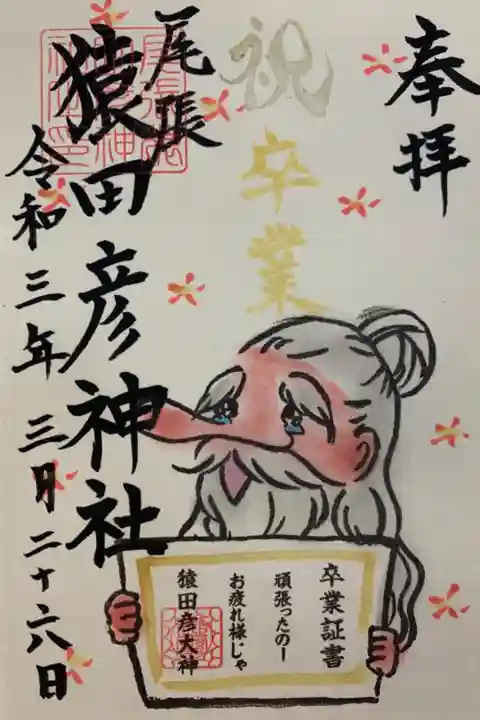 奉拝
祝卒業
尾張
猿田彦神社
令和三年三月二十六日
卒業証書
頑張ったのー
お疲れ様じゃ
猿田彦大神